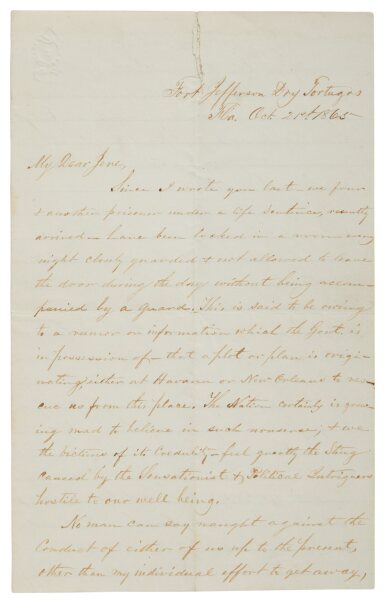 Fort Jefferson Dry Tortugas
Fla. Oct 21st 1865
My Dear Jere,
Since I wrote you last – we four
& another prisoner under a life sentence, recently
arrived – have been locked in a room every
night closely guarded & not allowed to leave
the door during the day without being accom-
panied by a guard. This is said to be owing
to a rumor or information which the Govt. is
in possession of – that a plot or plan is origi-
nating either at Havana or New Orleans to res-
cue us from this place. The Nation certainly is grow-
ing mad to believe in such nonsense; & we
the victims of its Credulity – feel greatly the Sting
caused by the Sensationist & Political Intriguers
hostile to our well being.
No man can say naught against the
Conduct of either of us up to the present,
other than my individual effort to get away,